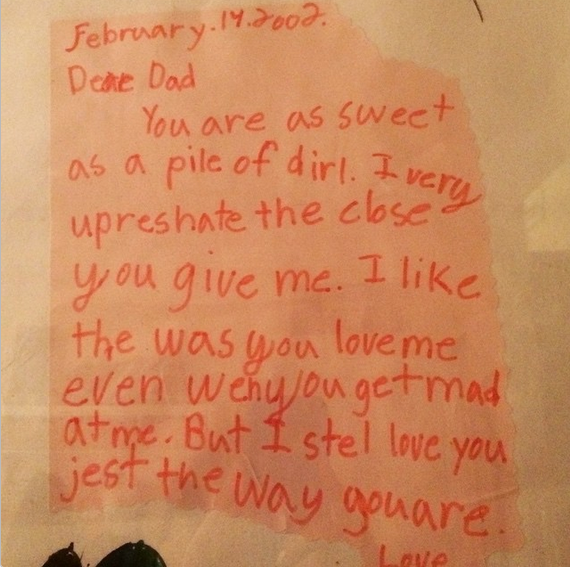 February.14.2002.
Deare Dad
You are as sweet
as a pile of dirl. I very
upreshate the close
you give me. I like
the was you love me
even weny/ou get mad
at me. But I stel love you
jest the way youare.
Love